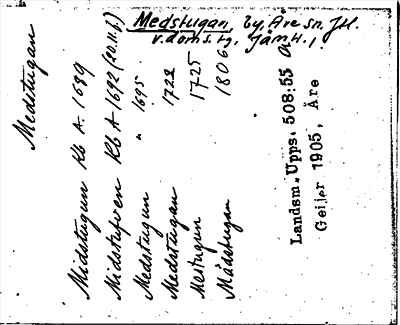 Medstugan, by, Åre sn, Jtl.
v.doms.tg, Jämtl.,
Medstugan
Midstugun Rb A. 1689
Midstufven Rb A 1692 (20.11.f.)
Medstugun " 1695
Medstugan 1722
Mestugun 1725
Mådstugan 1806
Landsm. Upps. 508:55 a
Geijer 1905, Åre